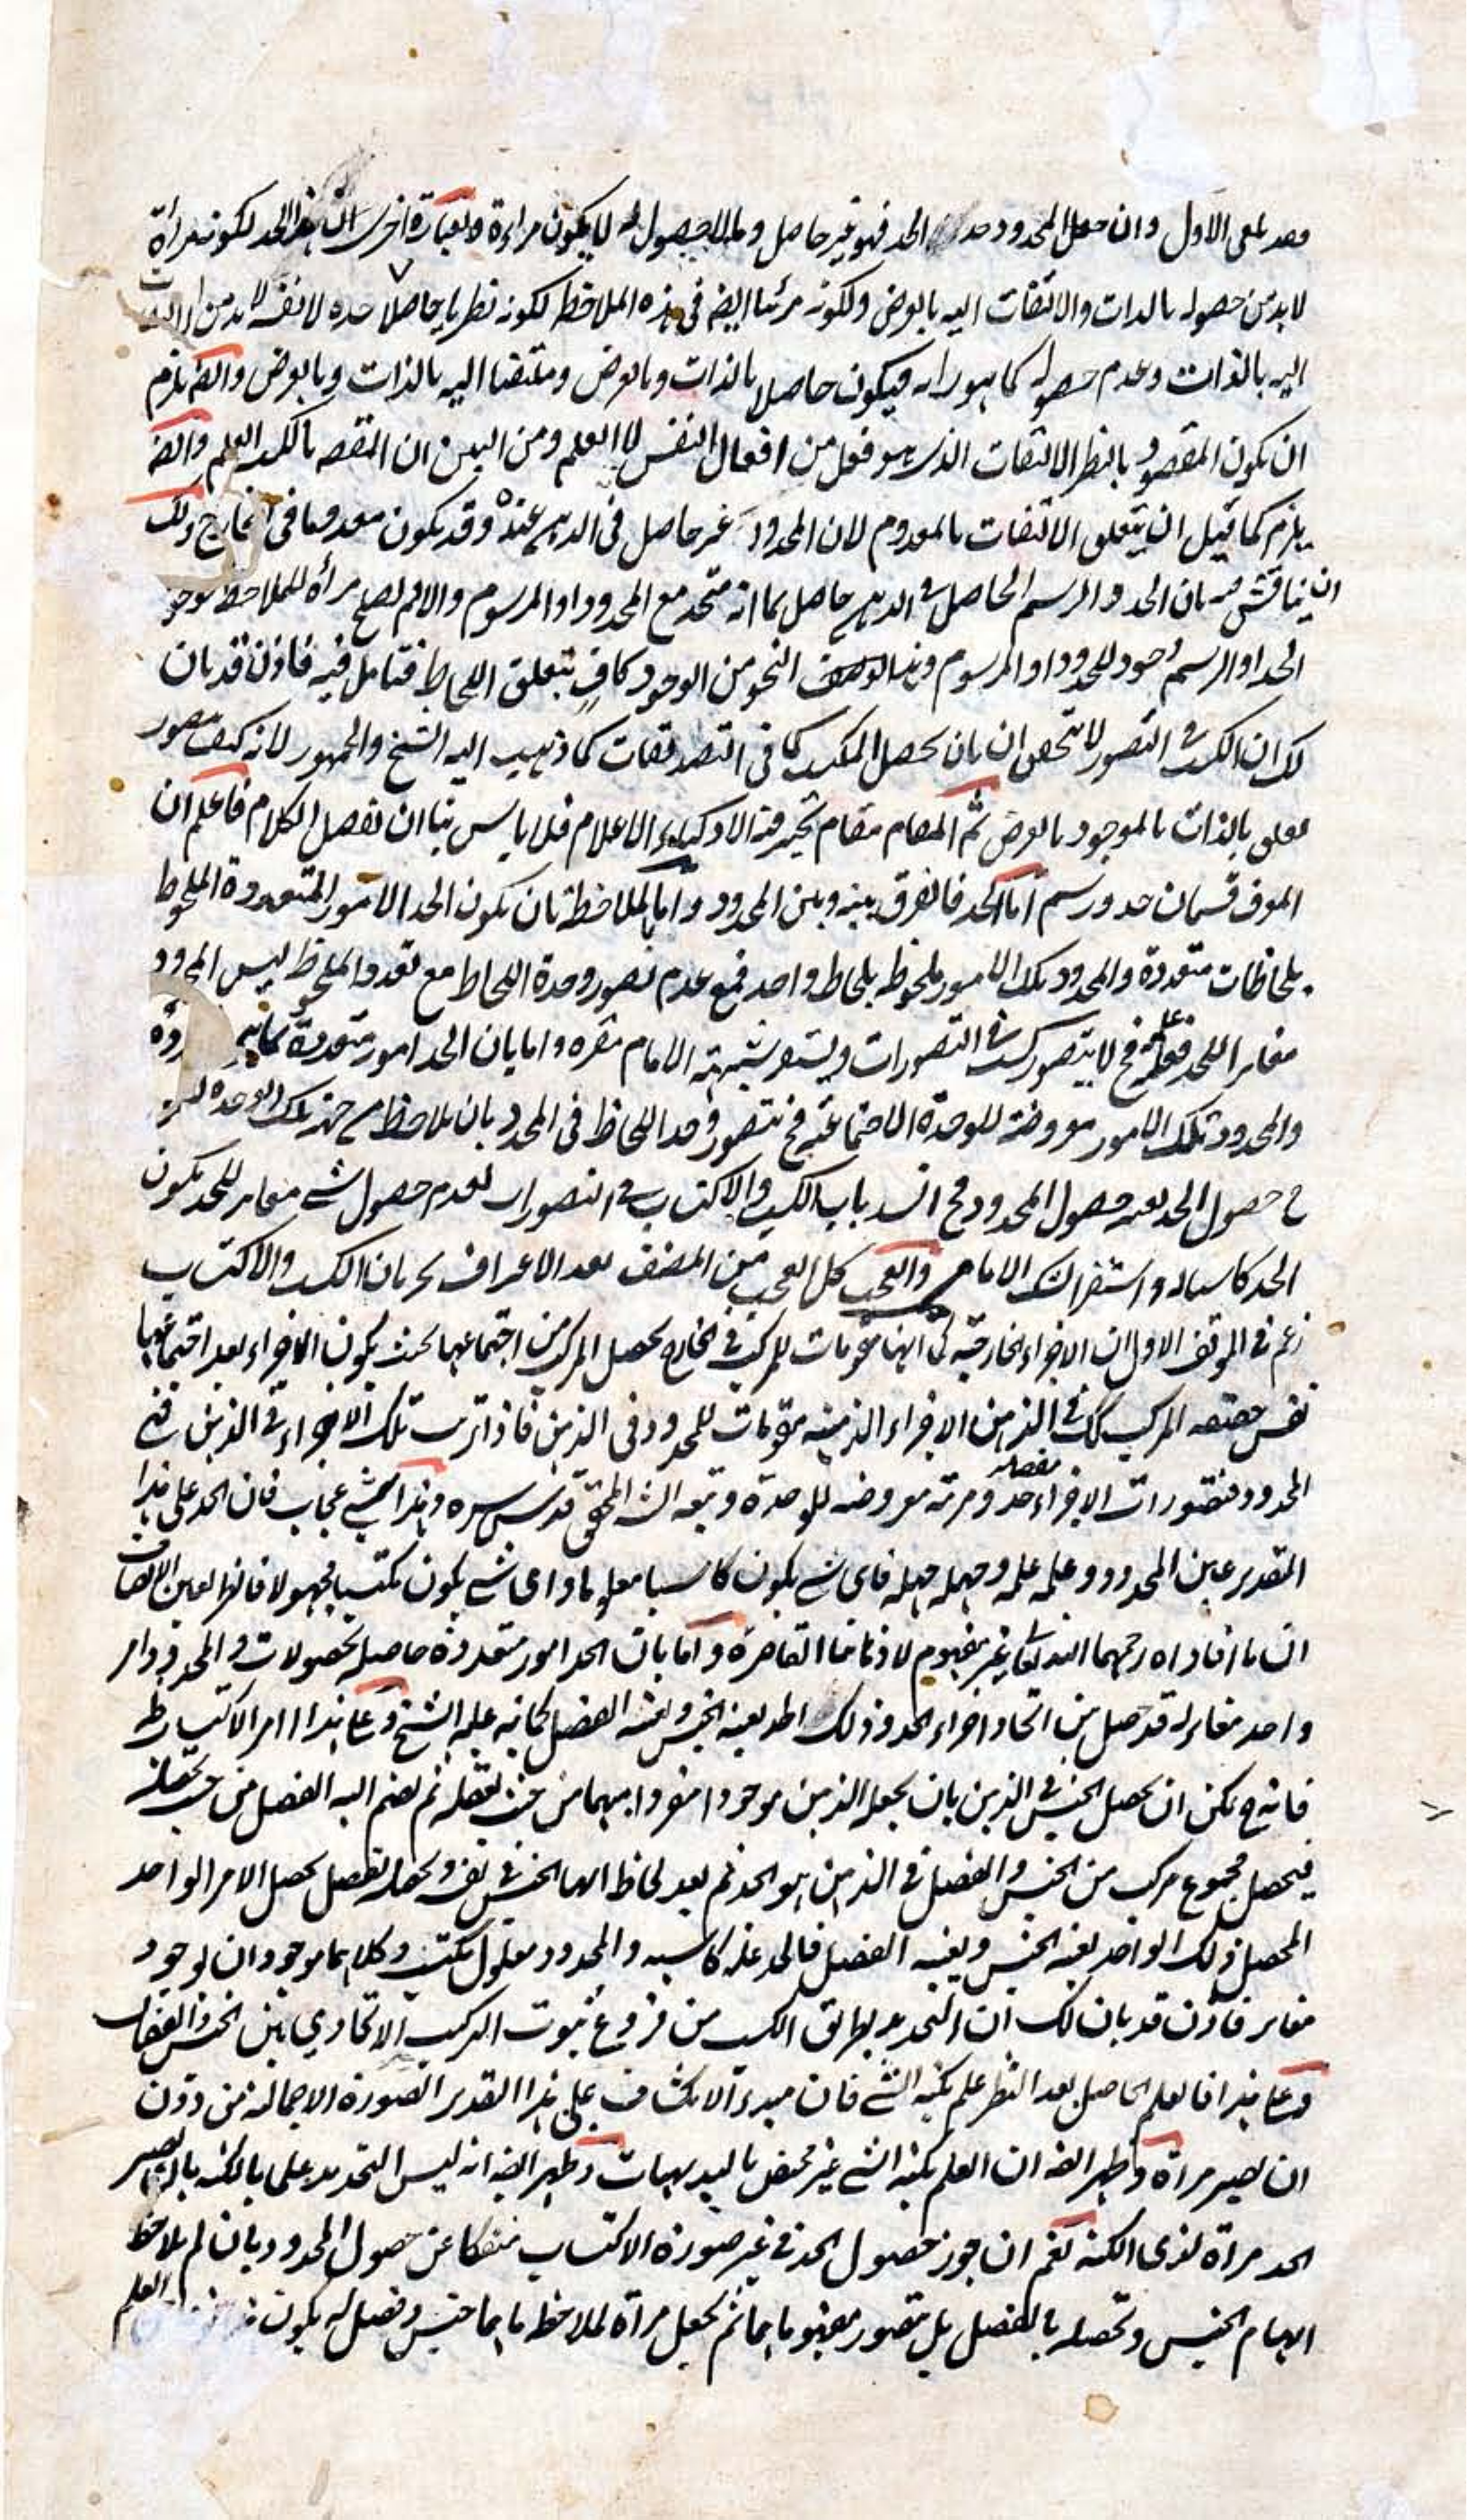 لمعى الاول وان جعل المحدود الحد فهو غير حاصل وما لا حصول له لا يكون مراءة وبعبارة اخرى ان الحد لكونه مرأة
لا بد من حصوله بالذات والالتفات اليه بالعرض ولكونه مرئيا ايضا في هذه الملاحظة لكونه نظريا حاصلا لا بد من الالتفات
اليه بالذات وعدم حصوله كما هو رايه فيكون حاصلا بالذات وبالعرض وملتفتا اليه بالذات وبالعرض وايضا يلزم
ان يكون المقصود بالنظر الالتفات الذى هو فعل من افعال النفس لا العلم ومن البين ان المقصود بالكسب العلم وايضا
يلزم كما قيل ان يتعلق الالتفات بالمعدوم لان المحدود غير حاصل في الذهن عنده وقد يكون معدوما في الخارج ولك
ان يناقش فيه بان الحد والرسم الحاصل فى الذهن حاصل بما انه متحد مع المحدود او المرسوم والا لم يصلح مرأة للملاحظة فوجود
الحد او الرسم وجود للمحدود او المرسوم وهذا النحو من الوجود كاف بتعلق اللحاظ فتامل فيه فاذن قد بان
لك ان الكسب فى التصور لا يتحقق الا بان يحصل المكتسب كما فى التصديقات كما ذهب اليه الشيخ والجمهور لانه كيف يتصور
بالذات بالموجود بالعرض ثم المقام مقام تحير فيه الاذكياء الاعلام فلا باس بنا ان نفصل الكلام فاعلم ان
المعرف قسمان حد ورسم اما الحد فالفرق بينه وبين المحدود اما بالملاحظة بان يكون الحد الامور المتعددة الملحوظة
بلحاظات متعددة والمحدود تلك الامور ملحوظة بلحاظ واحد فمع عدم تصور وحدة اللحاظ مع تعدد الملحوظ ليس المحدود
مغايرا للحد فح لا يتصور كسب فى التصورات ويستقر شبهة الامام مقره واما بان الحد امور متعددة
والمحدود تلك الامور معروضة للوحدة الاجتماعية فح يتصور وحدة اللحاظ فى المحدود بان يلاحظ من جهة تلك الوحدة
حصول الحد بعينه حصول المحدود فح انسد باب الكسب والاكتساب فى التصورات لعدم حصول شئ مغاير للحد يكون
الحد كاسبا له واستقر شك الامام والعجب كل العجب من المصنف بعد الاعتراف بجريان الكسب والاكتساب
زعم فى الموقف الاول ان الاجزاء الخارجية كما انها مقومات للمركب فى الخارج يحصل المركب من اجتماعهما بحيث يكون الاجزاء بعد اجتماعها
نفس حقيقة المركب كك فى الذهن الاجزاء الذهنية مقومات للمحدود فى الذهن فاذا ترتبت تلك الاجزاء فى الذهن فهى
المحدود فتصورات الاجزاء مفصلة حد ومرتبة معروضة للوحدة وتبعه الش المحقق قدس سره وهذا شئ عجاب فان الحد على هذا
التقدير عين المحدود وعلمه علمه وجهله جهله فاى شئ يكون كاسبا معلوما واى شئ يكون مكتسبا مجهولا فانظر بعين الانصاف
ان ما افاداه رحمهما الله تعالى غير مفهوم لاذهاننا القاصرة واما بان الحد امور متعددة حاصلة بحصولات والمحدود امر
واحد مغاير له قد حصل من اتحاد اجزاء الحد وذلك الواحد بعينه الجنس وبعينه الفصل كما نبه عليه الشيخ وعلى هذا امر الاكتساب ظ
فانه ح يمكن ان يحصل الجنس فى الذهن بان يجعله الذهن موجودا منفردا مبهما من حيث تعقله ثم يضم اليه الفصل من حيث تحصله
فيحصل مجموع مركب من الجنس والفصل فى الذهن هو الحد ثم بعد لحاظ ابهام الجنس فى نفسه وتحصله بالفصل يحصل الامر الواحد
المحصل ذلك الواحد بعينه الجنس وبعينه الفصل فالحد علة كاسبه والمحدود معلول مكتسب وكلاهما موجودان بوجود
مغاير فاذن قد بان لك ان التحديد بطريق الكسب من فروع ثبوت التركيب الاتحادي بين الجنس والفصل
وعلى هذا فالعلم الحاصل بعد النظر علم بكنه الشئ فان مبدء الانكشاف على هذا التقدير الصورة الاجمالية من دون
ان يصير مراة وظهر ايضا ان العلم بكنه الشئ غير مختص بالبديهيات وظهر ايضا انه ليس التحديد علما بالكنه بان يصير
الحد مراة لذى الكنه نعم ان جوز حصول الحد فى غير صورة الاكتساب منفكا عن حصول المحدود بان لم يلاحظ
ابهام الجنس وتحصله بالفصل بل يتصور مفهوماهما ثم يجعل مراة لملاحظة ما هما جنس وفصل له يكون العلم